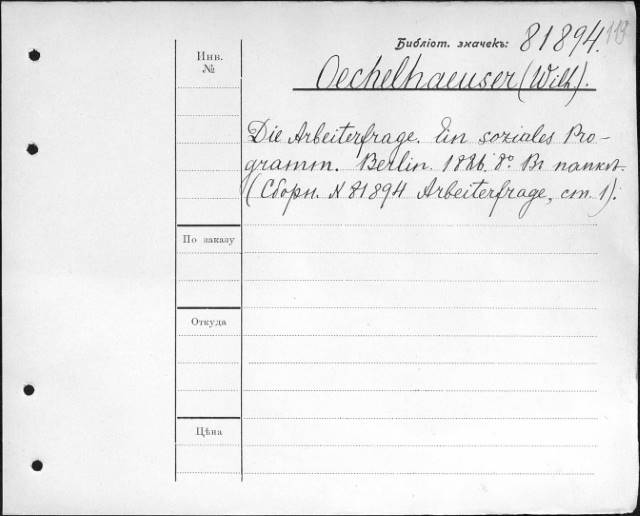 Библіот. значекъ: 81894. 113
Инв.
№
Oechelhaeuser (Wilh).
Die Arbeiterfrage. Ein soziales Pro-
gramm. Berlin. 1886. 8º. Въ папкѣ.
(Сборн. № 81894 Arbeiterfrage, ст. 1).
По заказу
Откуда
Цѣна